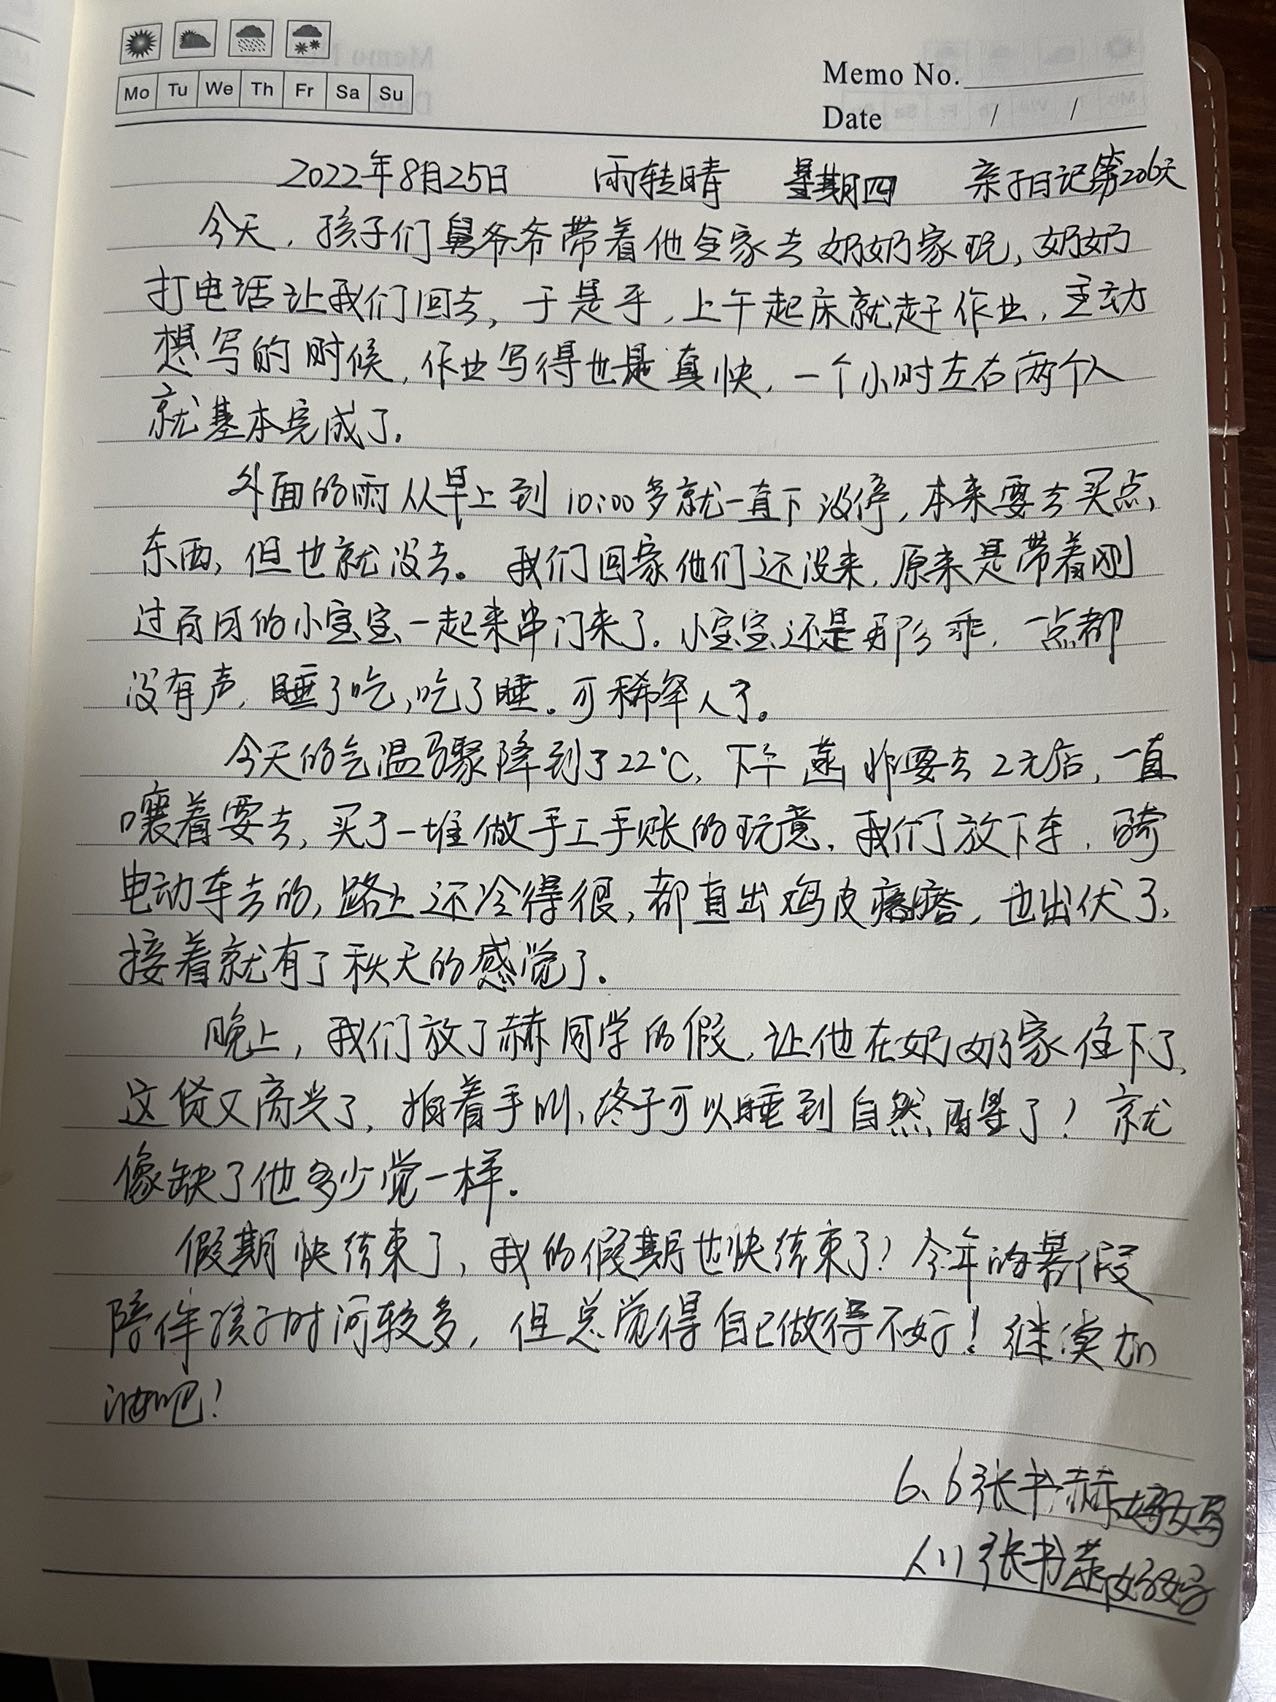 Mo Tu We Th Fr Sa Su
Memo No.
Date / /
2022年8月25日 雨转晴 星期四 亲子日记第206天
今天，孩子们舅爷爷带着他全家去奶奶家玩，奶奶
打电话让我们回去，于是乎，上午起床就赶作业，主动
想写的时候，作业写得也是真快，一个小时左右两个人
就基本完成了。
外面的雨从早上到10:00多就一直下没停，本来要去买点
东西，但也就没去。我们回家他们还没来，原来是带着刚
过百日的小宝宝一起来串门来了。小宝宝还是那么乖，一点都
没有声，睡了吃，吃了睡。可稀罕人了。
今天的气温骤降到了22℃，下午 非要去2元店，一直
嚷着要去，买了一堆做手工手账的玩意。我们放下车，骑
电动车去的，路上还冷得很，都直出鸡皮疙瘩，也出伏了，
接着就有了秋天的感觉了。
晚上，我们放了赫同学的假，让他在奶奶家住下了，
这货又高兴了，拍着手叫，终于可以睡到自然醒了！就
像缺了他多少觉一样。
假期快结束了，我的假期也快结束了！今年的暑假
陪伴孩子时间较多，但总觉得自己做得不好！继续加
油吧！
6.6张书赫妈妈
张书 妈妈